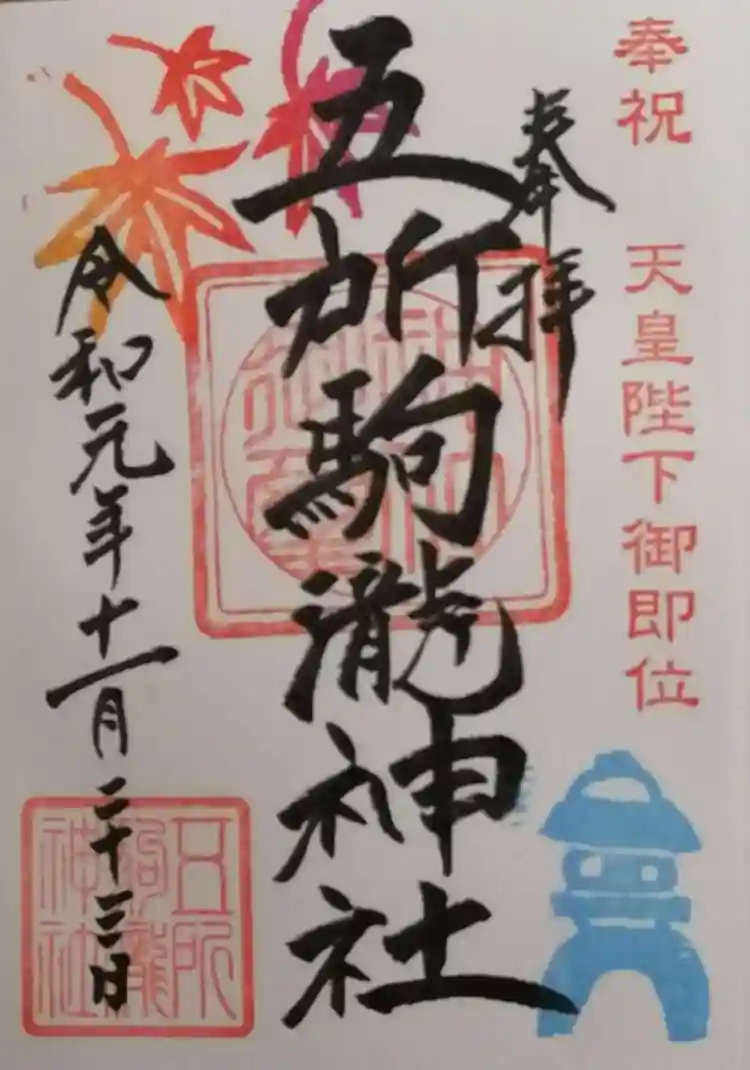 奉祝 天皇陛下御即位
奉拝
五所駒瀧神社
令和元年十一月二十三日
五所
駒瀧
神社